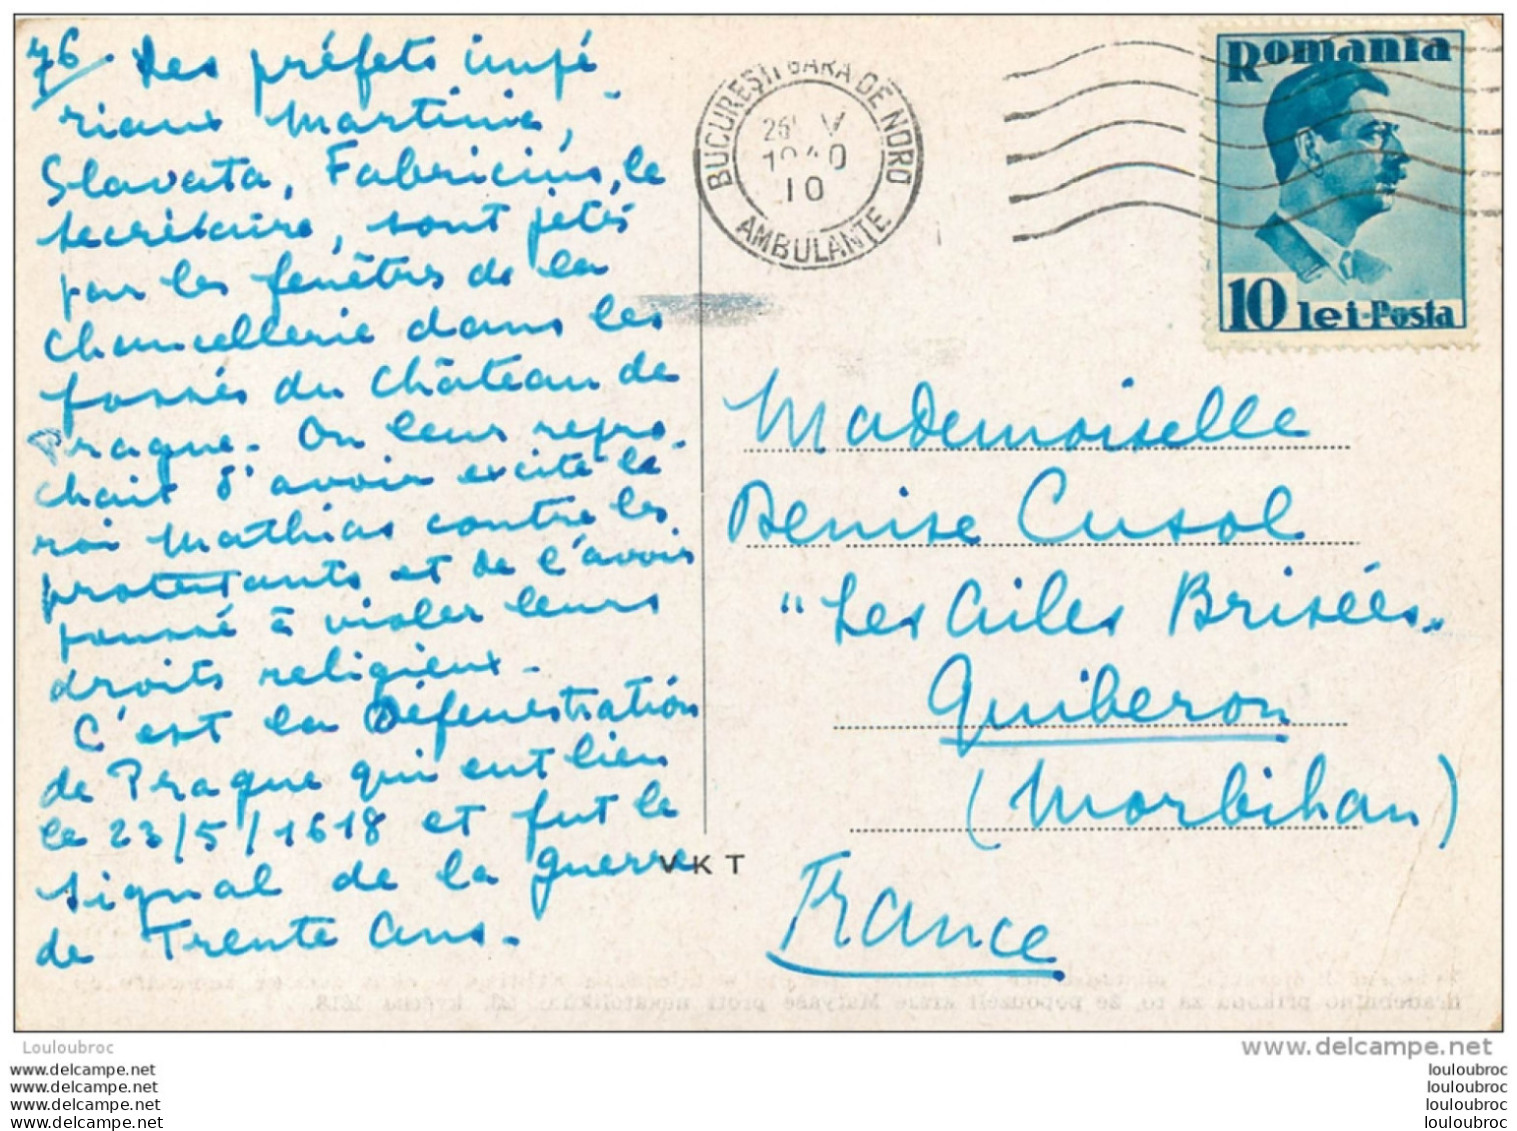 76. Les préfets impé
riaux Martinic,
Slavata, Fabricius, le
secrétaire, sont jetés
par les fenêtres de la
chancellerie dans les
fossés du Château de
Prague. On leur repro-
chait d'avoir excité le
roi Mathias contre les
protestants et de l'avoir
poussé à violer leurs
droits religieux.
C'est la Défenestration
de Prague qui eut lieu
le 23/5/1618 et fut le
signal de la guerre
de Trente Ans.
BUCUREȘTI GARA DE NORD
26 V
1940
10
AMBULANTE
Romania
10 lei-Posta
Mademoiselle
Denise Cusol
"Les Ailes Brisées"
Quiberon
(Morbihan)
France
VKT
hradebního příkopu za to, že popouzeli krále Matyáše proti nekatolíkům. 23. května 1618.
Louloubroc
www.delcampe.net
www.delcampe.net
www.delcampe.net
www.delcampe.net
www.delcampe.net
louloubroc
louloubroc
louloubroc
louloubroc